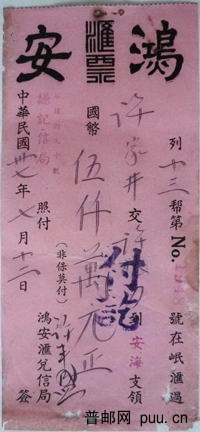 鴻安
滙票
列十三帮第No.號在岷滙過
許家井交許到安海支領
國幣伍仟萬元正
付訖
(非條莫付)
謙記信局照付
鴻安滙兌信局簽
中華民國卅七年七月十二日
普邮网 puu.cn